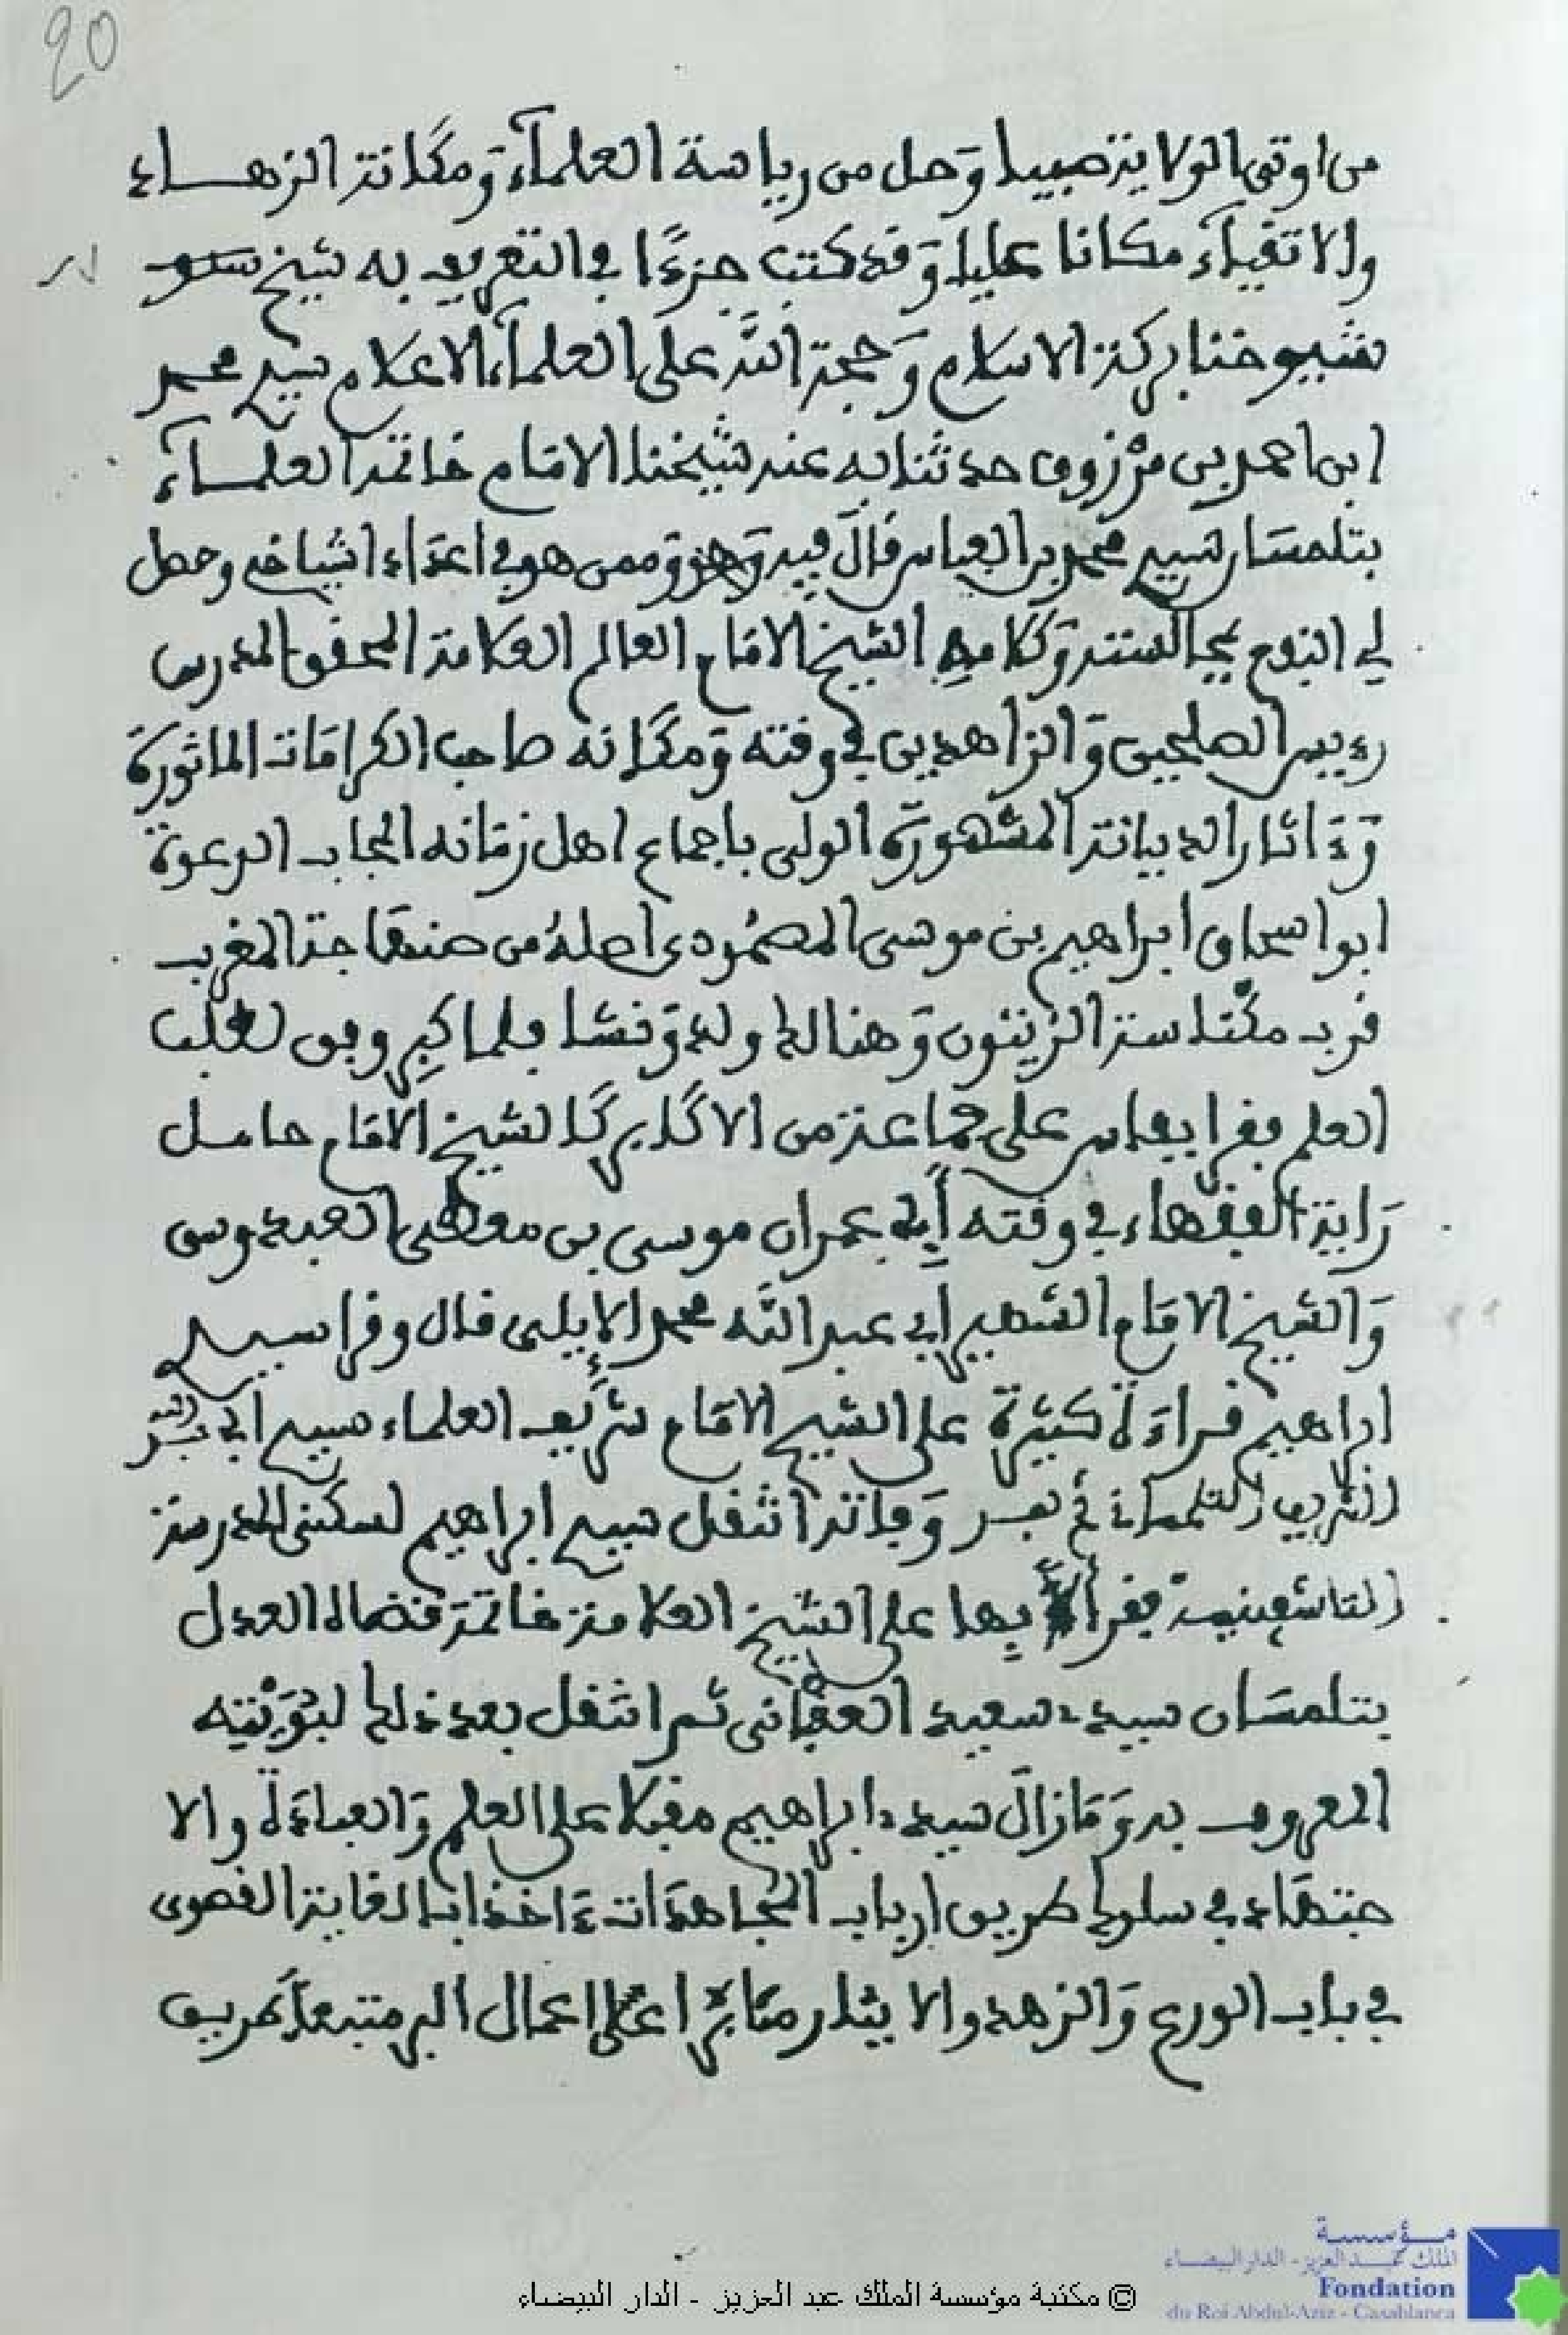 20
من اوتي الولاية صبيا وَحل من رياسة العلمآء وَمكانة الزهساء
والاتقيآء مكانا عليا وَقد كتب جزءًا في التعريف به شيخ
شيوخنا بركة الاسلام وَحجة الله على العلمآء الاعلام سيد محمد
ابن احمد بن مرْزوق حدثنا به عنه شيخنا الامَام خاتمة العلماء
بتلمسَان سيد محمد بن العباس قالَ فيه وممن هو في اعدَاد اشياخي وحصل
لي النبع بمجالسته وَكلامه الشيخ الامَام العالم العلامة المحقق المدرس
رءييس الصلحيين وَالزاهدين في وقته وَمكَانه صاحب الكرامَات الماثورة
وَءاثار الديانة المشهورة الولي باجماع اهل زمَانه المجاب الدعوة
ابو اسحاق ابراهيم بن موسى المصمُودي اصلهُ من صنهَاجة المغرب
قرب مكْناسة الزيتون وَهنالك ولد وَنشا فلما كبِر وفق لطلب
العلم فقرا بفاس على جماعة من الاكَابر كَالشيخ الامَام حامل
رَاية الفقهاء في وقته أبي عمران موسى بن معطى العبدوسي
وَالشيخ الامَام الشهير أبي عبد الله محمد الإبلي قال وقرا سيد
ابراهيم قراءَة كثيرة على الشيخ الامَام شريف العلماء سيد ابي عبد الله
الشريف التلمساني وَفاته انتقل سيد ابراهيم لسكنى المدرسة
التاشفينية فقرأ بها على الشيخ العلامة خاتمة قضاة العدل
بتلمسَان سيدء سعيد العقبْاني ثم انتقل بعد ذلك لبُوَيْتِه
المعروف به وَمَازالَ سيدء ابراهيم مقبلا على العلم وَالعبادَة والا
جتهَاد في سلوك طريق ارباب المجاهدَات ءاخذا بالغاية القصوى
في باب الورع وَالزهد والايثار مثابرْا على اعمال البر متبعاً طريق
© مكتبة مؤسسة الملك عبد العزيز - الدار البيضاء
مؤسسة
الملك عبد العزيز - الدار البيضاء
Fondation
du Roi Abdul-Aziz - Casablanca